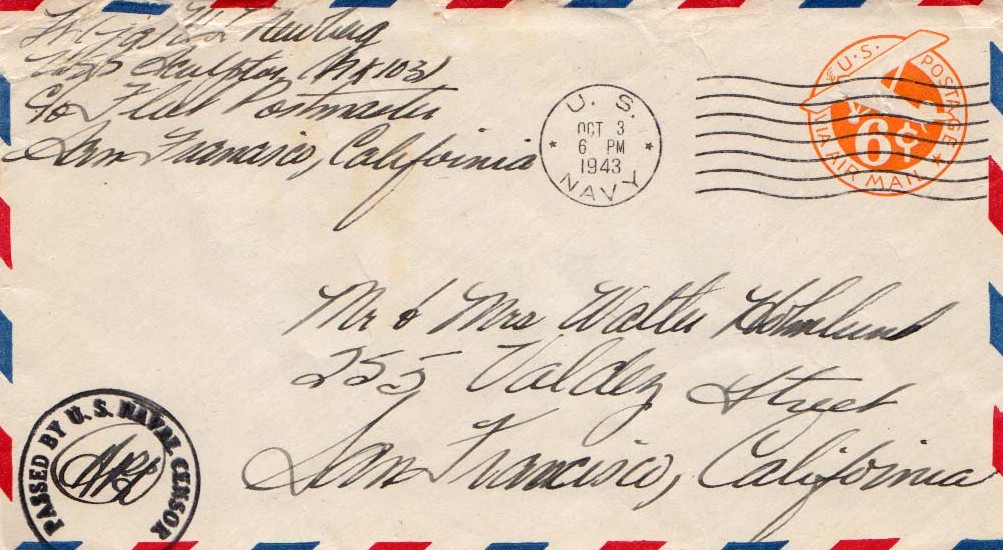 Lt (jg) M Newberg
USS Sculptor (IX 103)
c/o Fleet Postmaster
San Francisco, California
U. S.
OCT 3
6 PM
1943
NAVY
U.S. POSTAGE
6¢
VIA AIR MAIL
Mr & Mrs Walter Holmlund
255 Valdez Street
San Francisco, California
PASSED BY U. S. NAVAL CENSOR